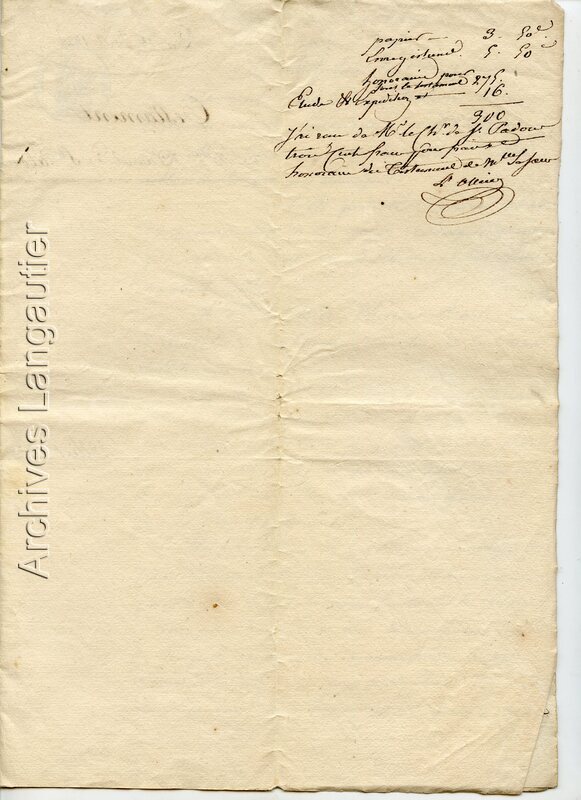 papier — 3. 50c.
Enregistremt. 5. 50c
honoraire pour
tout le testament 275.
Etude & expedition 16.
300
J'ai reçu de Mr. le Chr. de St. Padou
trois Cents francs pour frais et
honoraire du Testament de Mlle Sa Soeur
Archives Langautier